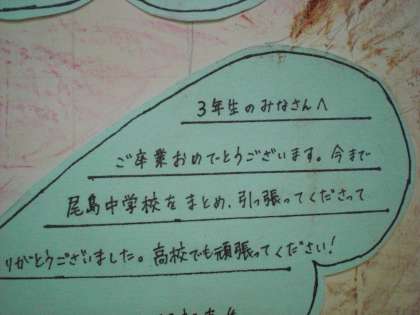 3年生のみなさんへ
ご卒業おめでとうございます。今まで
尾島中学校をまとめ、引っ張ってくださって
りがとうございました。高校でも頑張ってください!